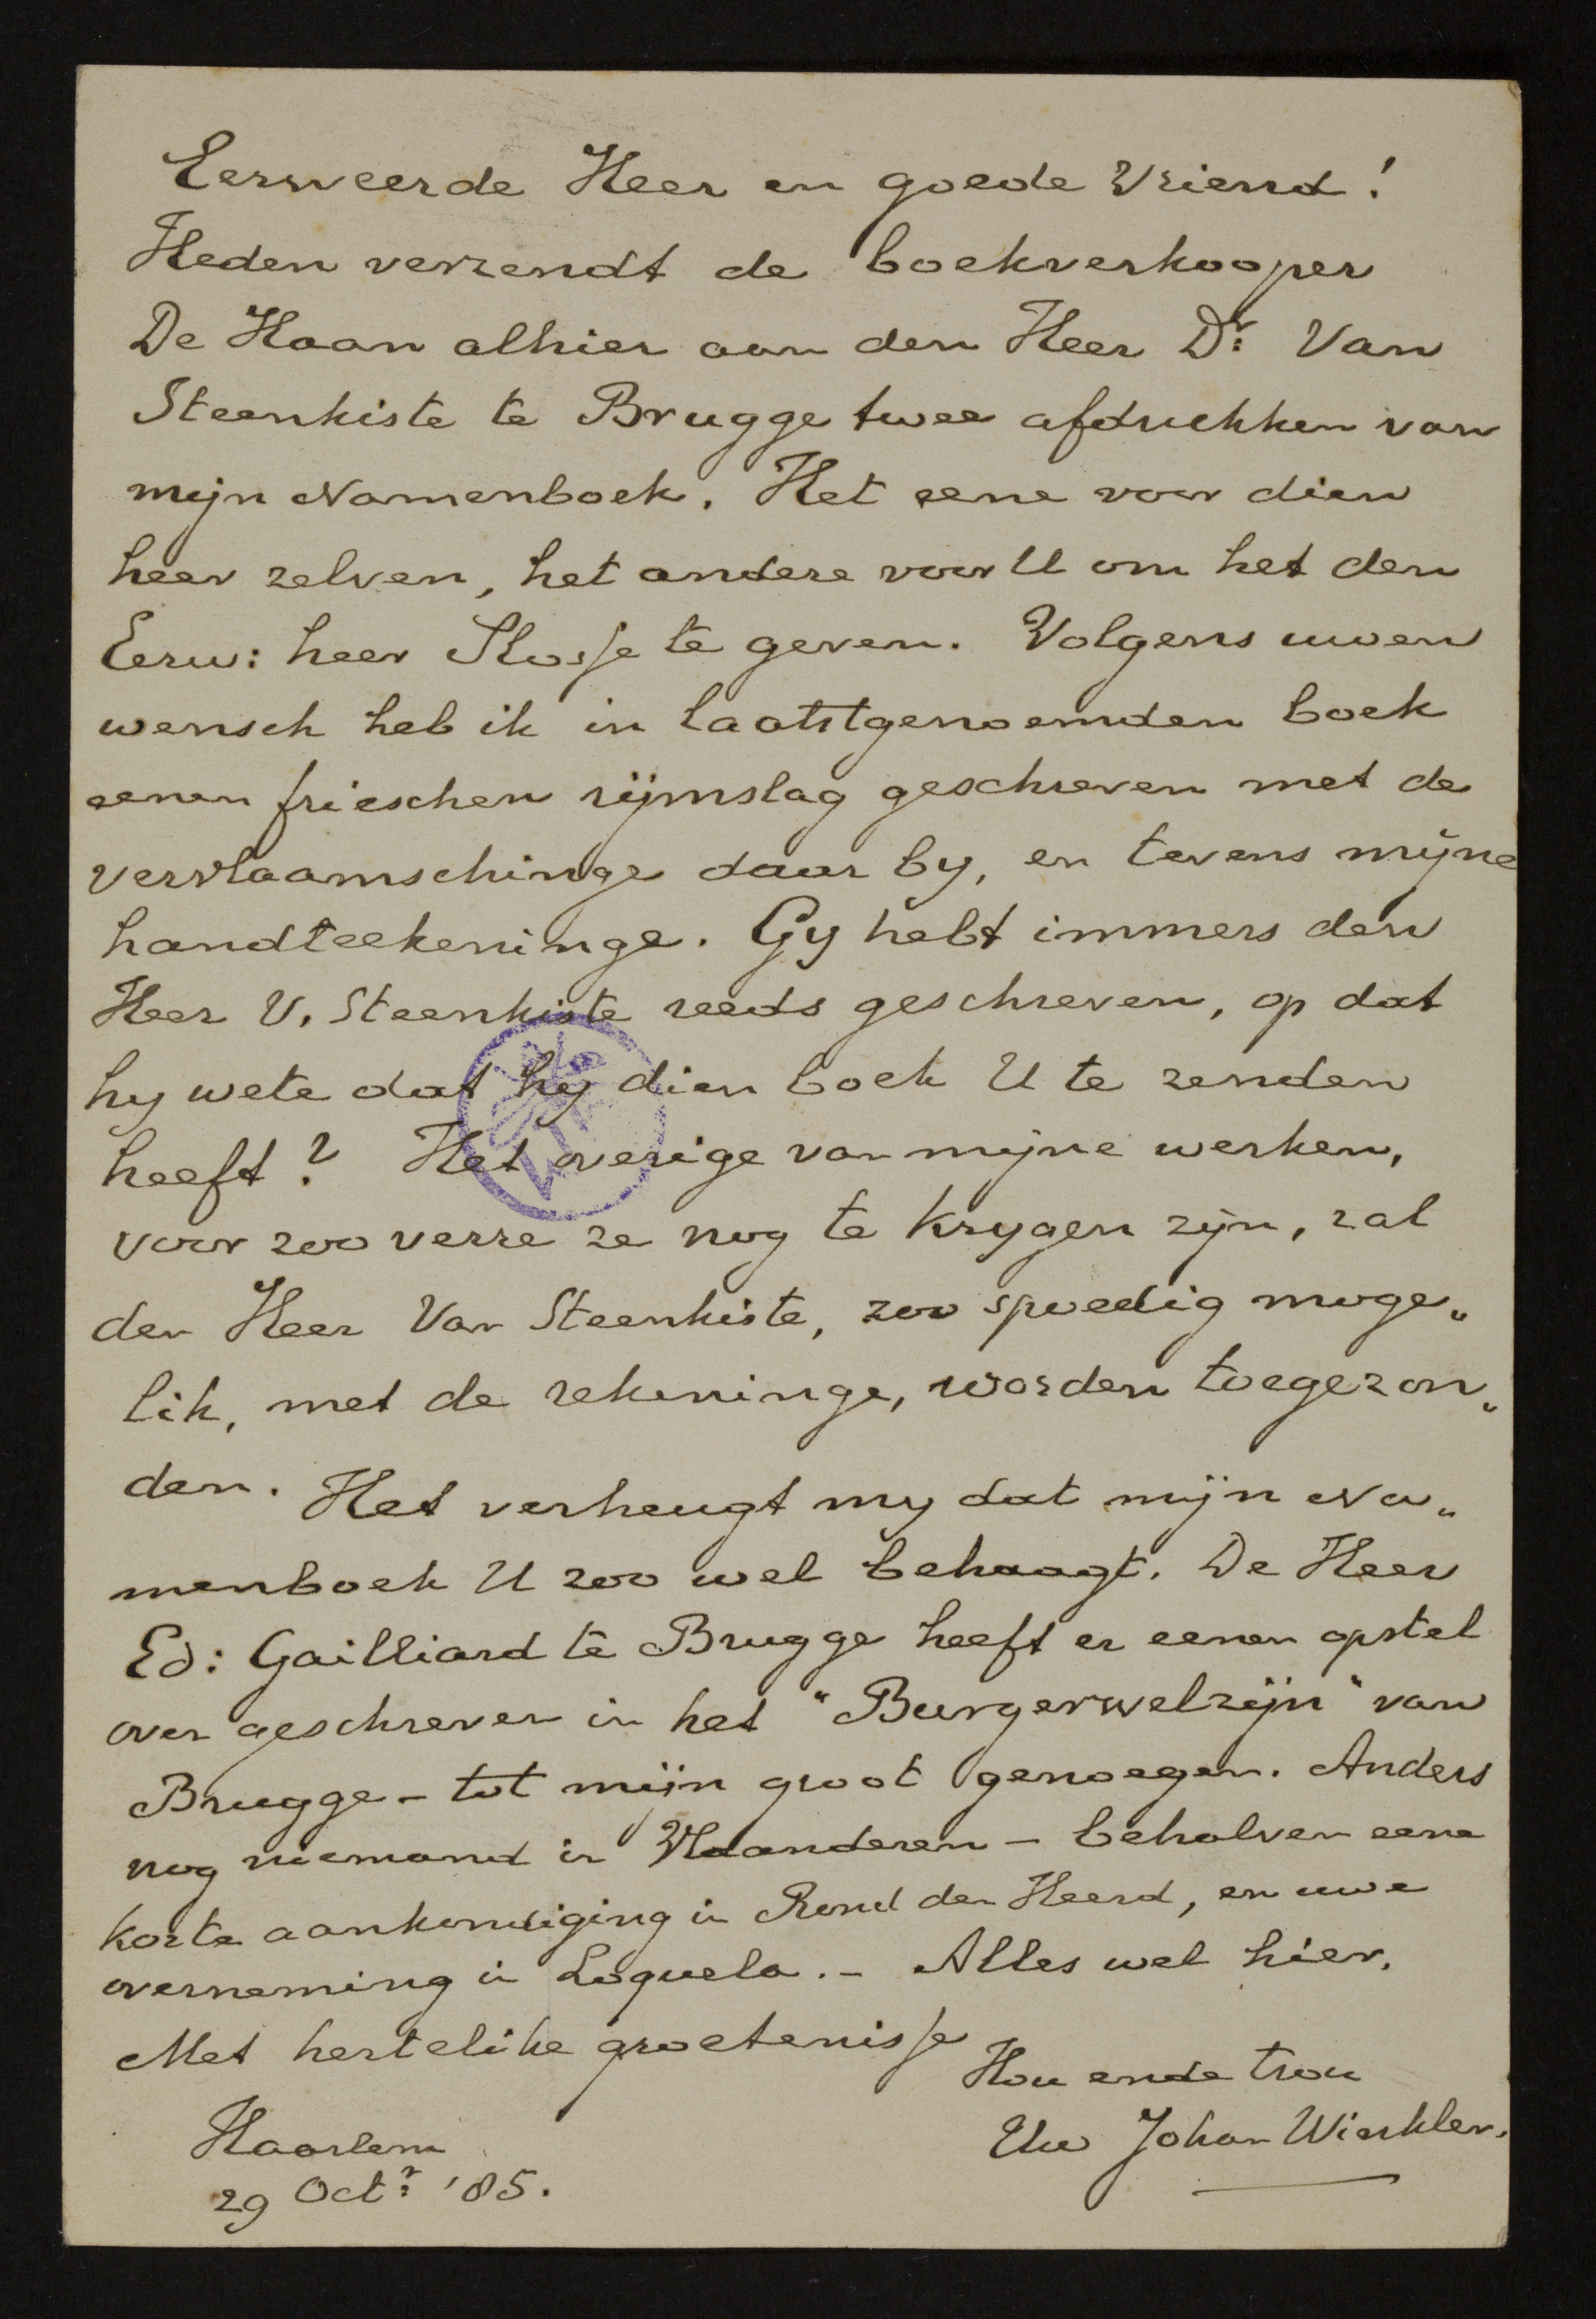 Eerweerde Heer en goede Vriend!
Heden verzendt de boekverkooper
De Haan alhier aan den Heer Dr: Van
Steenkiste te Brugge twee afdrukken van
mijn Namenboek. Het eene voor dien
heer zelven, het andere voor U om het den
Eerw: heer Slosse te geven. Volgens uwen
wensch heb ik in laatstgenoemden boek
eenen frieschen rijmslag geschreven met de
vervlaamschinge daar by, en tevens mijne
handteekeninge. Gy hebt immers den
Heer V. Steenkiste reeds geschreven, op dat
hy wete dat hy dien boek U te zenden
heeft? Het overige van mijne werken,
voor zoo verre ze nog te krygen zijn, zal
den Heer Van Steenkiste, zoo spoedig moge„
lik, met de rekeninge, worden toegezon„
den. Het verheugt my dat mijn Na„
menboek U zoo wel behaagt. De Heer
Ed: Gailliard te Brugge heeft er eenen opstel
over geschreven in het "Burgerwelzijn" van
Brugge - tot mijn groot genoegen. Anders
nog niemand in Vlaanderen - behalven eene
korte aankondiging in Rond den Heerd, en uwe
overneming in Loquela. - Alles wel hier.
Met hertelike groetenisse
Hou ende trou
Uw Johan Winkler.
Haarlem
29 Octr: '85.